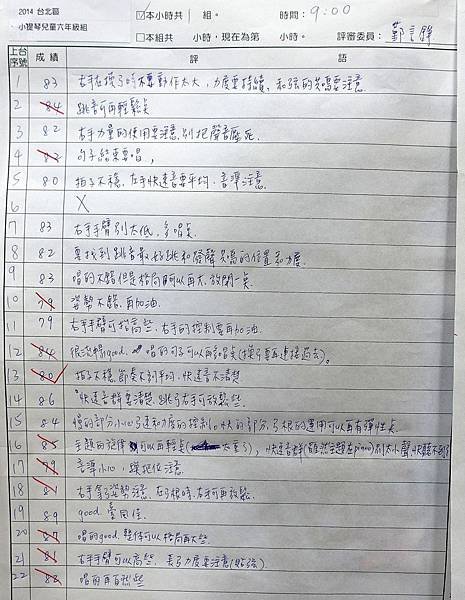 2014 台北區
小提琴兒童六年級組
☑本小時共 1 組。 時間：9:00
□本組共 小時，現在為第 小時。評審委員：
上台序號 成績 評語
1 83 右手在換弓時不要動作太大，力度要持續，和弦的共鳴要注意
2 84 跳音可再輕鬆点
3 82 右手力量的使用要注意，別把聲音壓死。
4 83 句子結束要唱，
5 80 拍子不穩，左手快速音要平均，音準注意
6 X
7 83 右手手臂別太低，多唱点
8 82 要找到跳音最好跳和發聲共鳴的位置和力度
9 83 唱的不錯但是格局可以再大，放開一点
10 79 姿勢不錯，再加油
11 79 右手手臂可抬高些，右手的控制要再加油
12 84 很流暢good. 唱的句子可以再多唱点(換弓要再連接過去)。
13 80 拍子不穩，節奏不到平均，快速音不清楚
14 86 快速音群要清楚，跳弓右手可放鬆些
15 84 慢的部分小心弓速和力度的控制，快的部分，弓根的運用可以再有彈性点
16 85 主題的旋律可以再輕点(太重了)，快速音群(雖然主題在piano)別太小聲，快聽不到了
17 79 音準小心，換把位注意
18 81 右手拿弓姿勢注意，在弓根時，右手可再放鬆
19 89 good. 臺風佳
20 87 唱的good. 整体可以格局再大些
21 81 右手手臂可以高些，長弓力度要注意(貼弦)
22 82 唱的再自然些